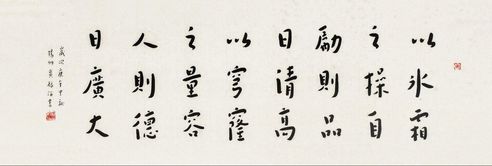 以氷霜
之操自
勵則品
日清高
以穹窿
之量容
人則德
日廣大
歲次庚午